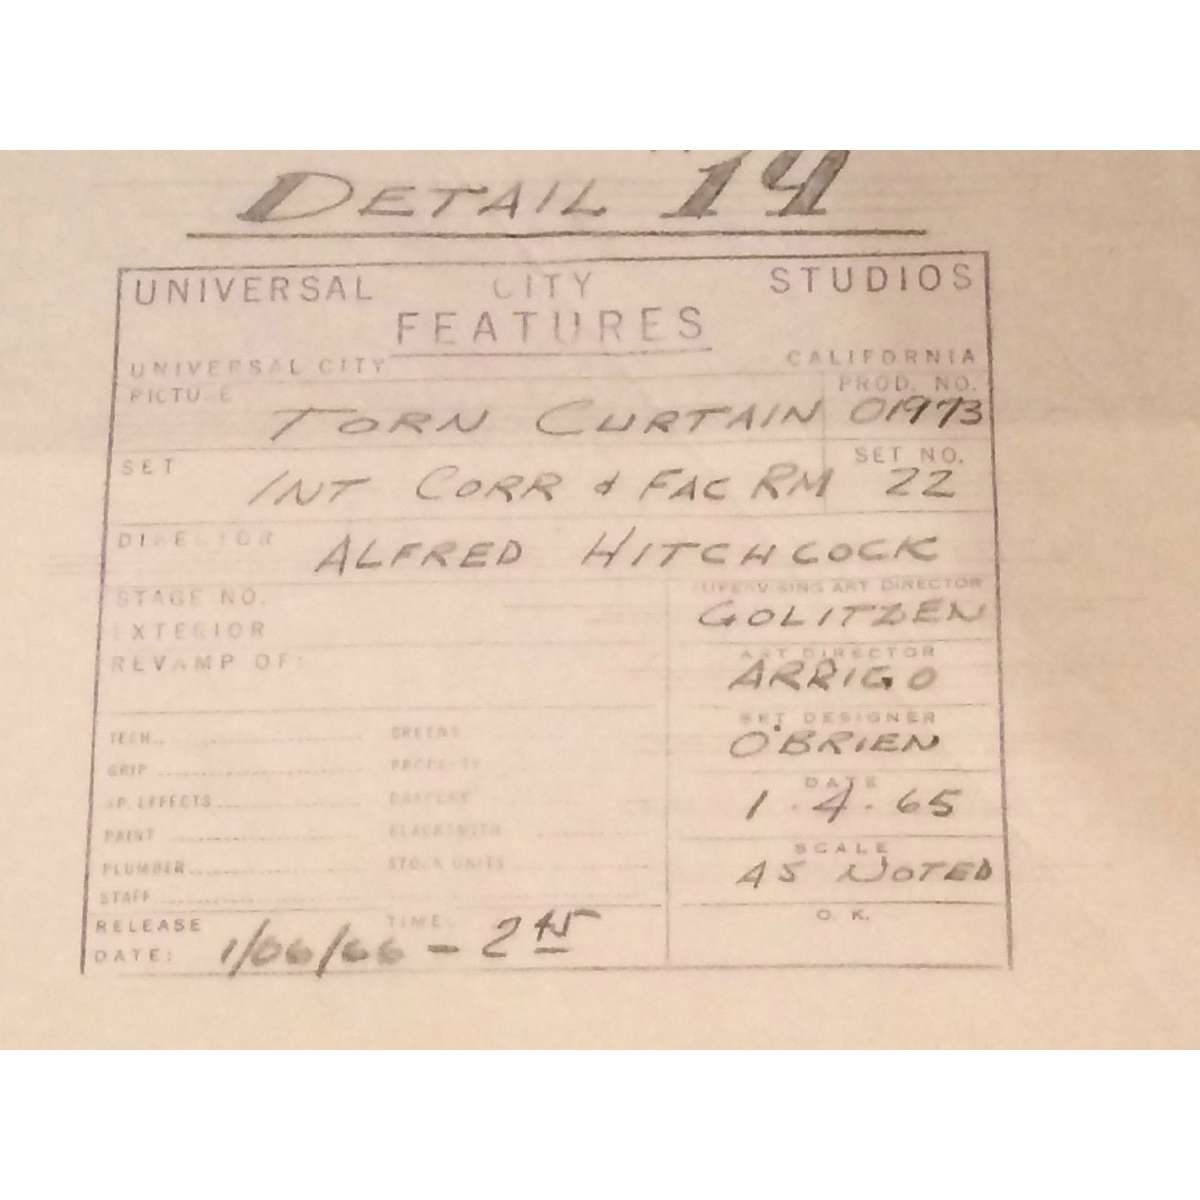 DETAIL 14
UNIVERSAL CITY STUDIOS
FEATURES
UNIVERSAL CITY CALIFORNIA
PICTURE TORN CURTAIN PROD. NO. 01973
SET INT CORR & FAC RM SET NO. 22
DIRECTOR ALFRED HITCHCOCK
STAGE NO.
EXTERIOR
REVAMP OF:
SUPERVISING ART DIRECTOR
GOLITZEN
ART DIRECTOR
ARRIGO
SET DESIGNER
O'BRIEN
DATE
1.4.65
SCALE
AS NOTED
O.K.
TECH. GREENS
GRIP PROPERTY
SP. EFFECTS DRAPERY
PAINT BLACKSMITH
PLUMBER STOCK UNITS
STAFF
RELEASE DATE: 1/06/66 - TIME: 2 45